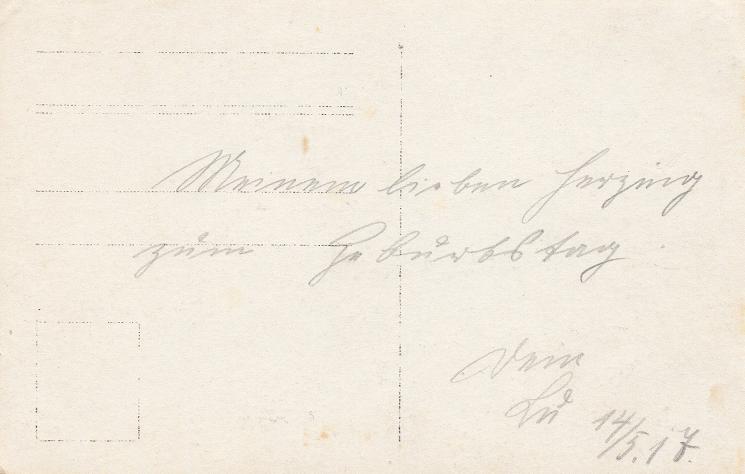 Meinem lieben Herzing
zum Geburtstag.
Dein
Lu
14/5.17.